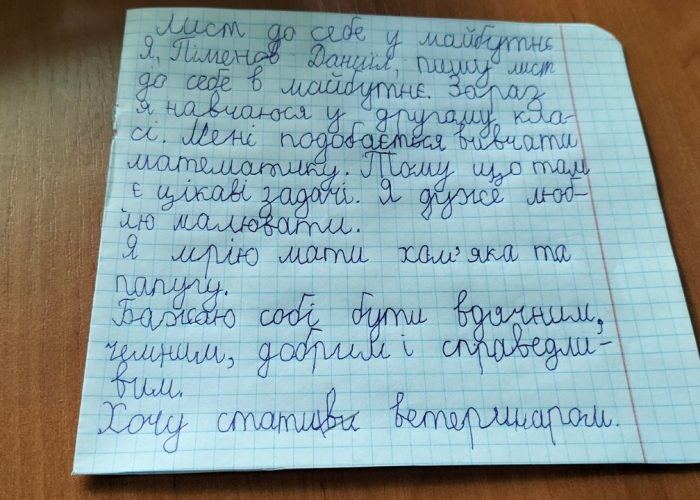 Лист до себе у майбутнє
Я, Піменов Даниїл, пишу лист
до себе в майбутнє. Зараз
я навчаюся у другому кла-
сі. Мені подобається вивчати
математику. Тому що там
є цікаві задачі. Я дуже люб-
лю малювати.
Я мрію мати хом'яка та
папугу.
Бажаю собі бути вдячним,
чемним, добрим і справедли-
вим.
Хочу стати ветеринаром.